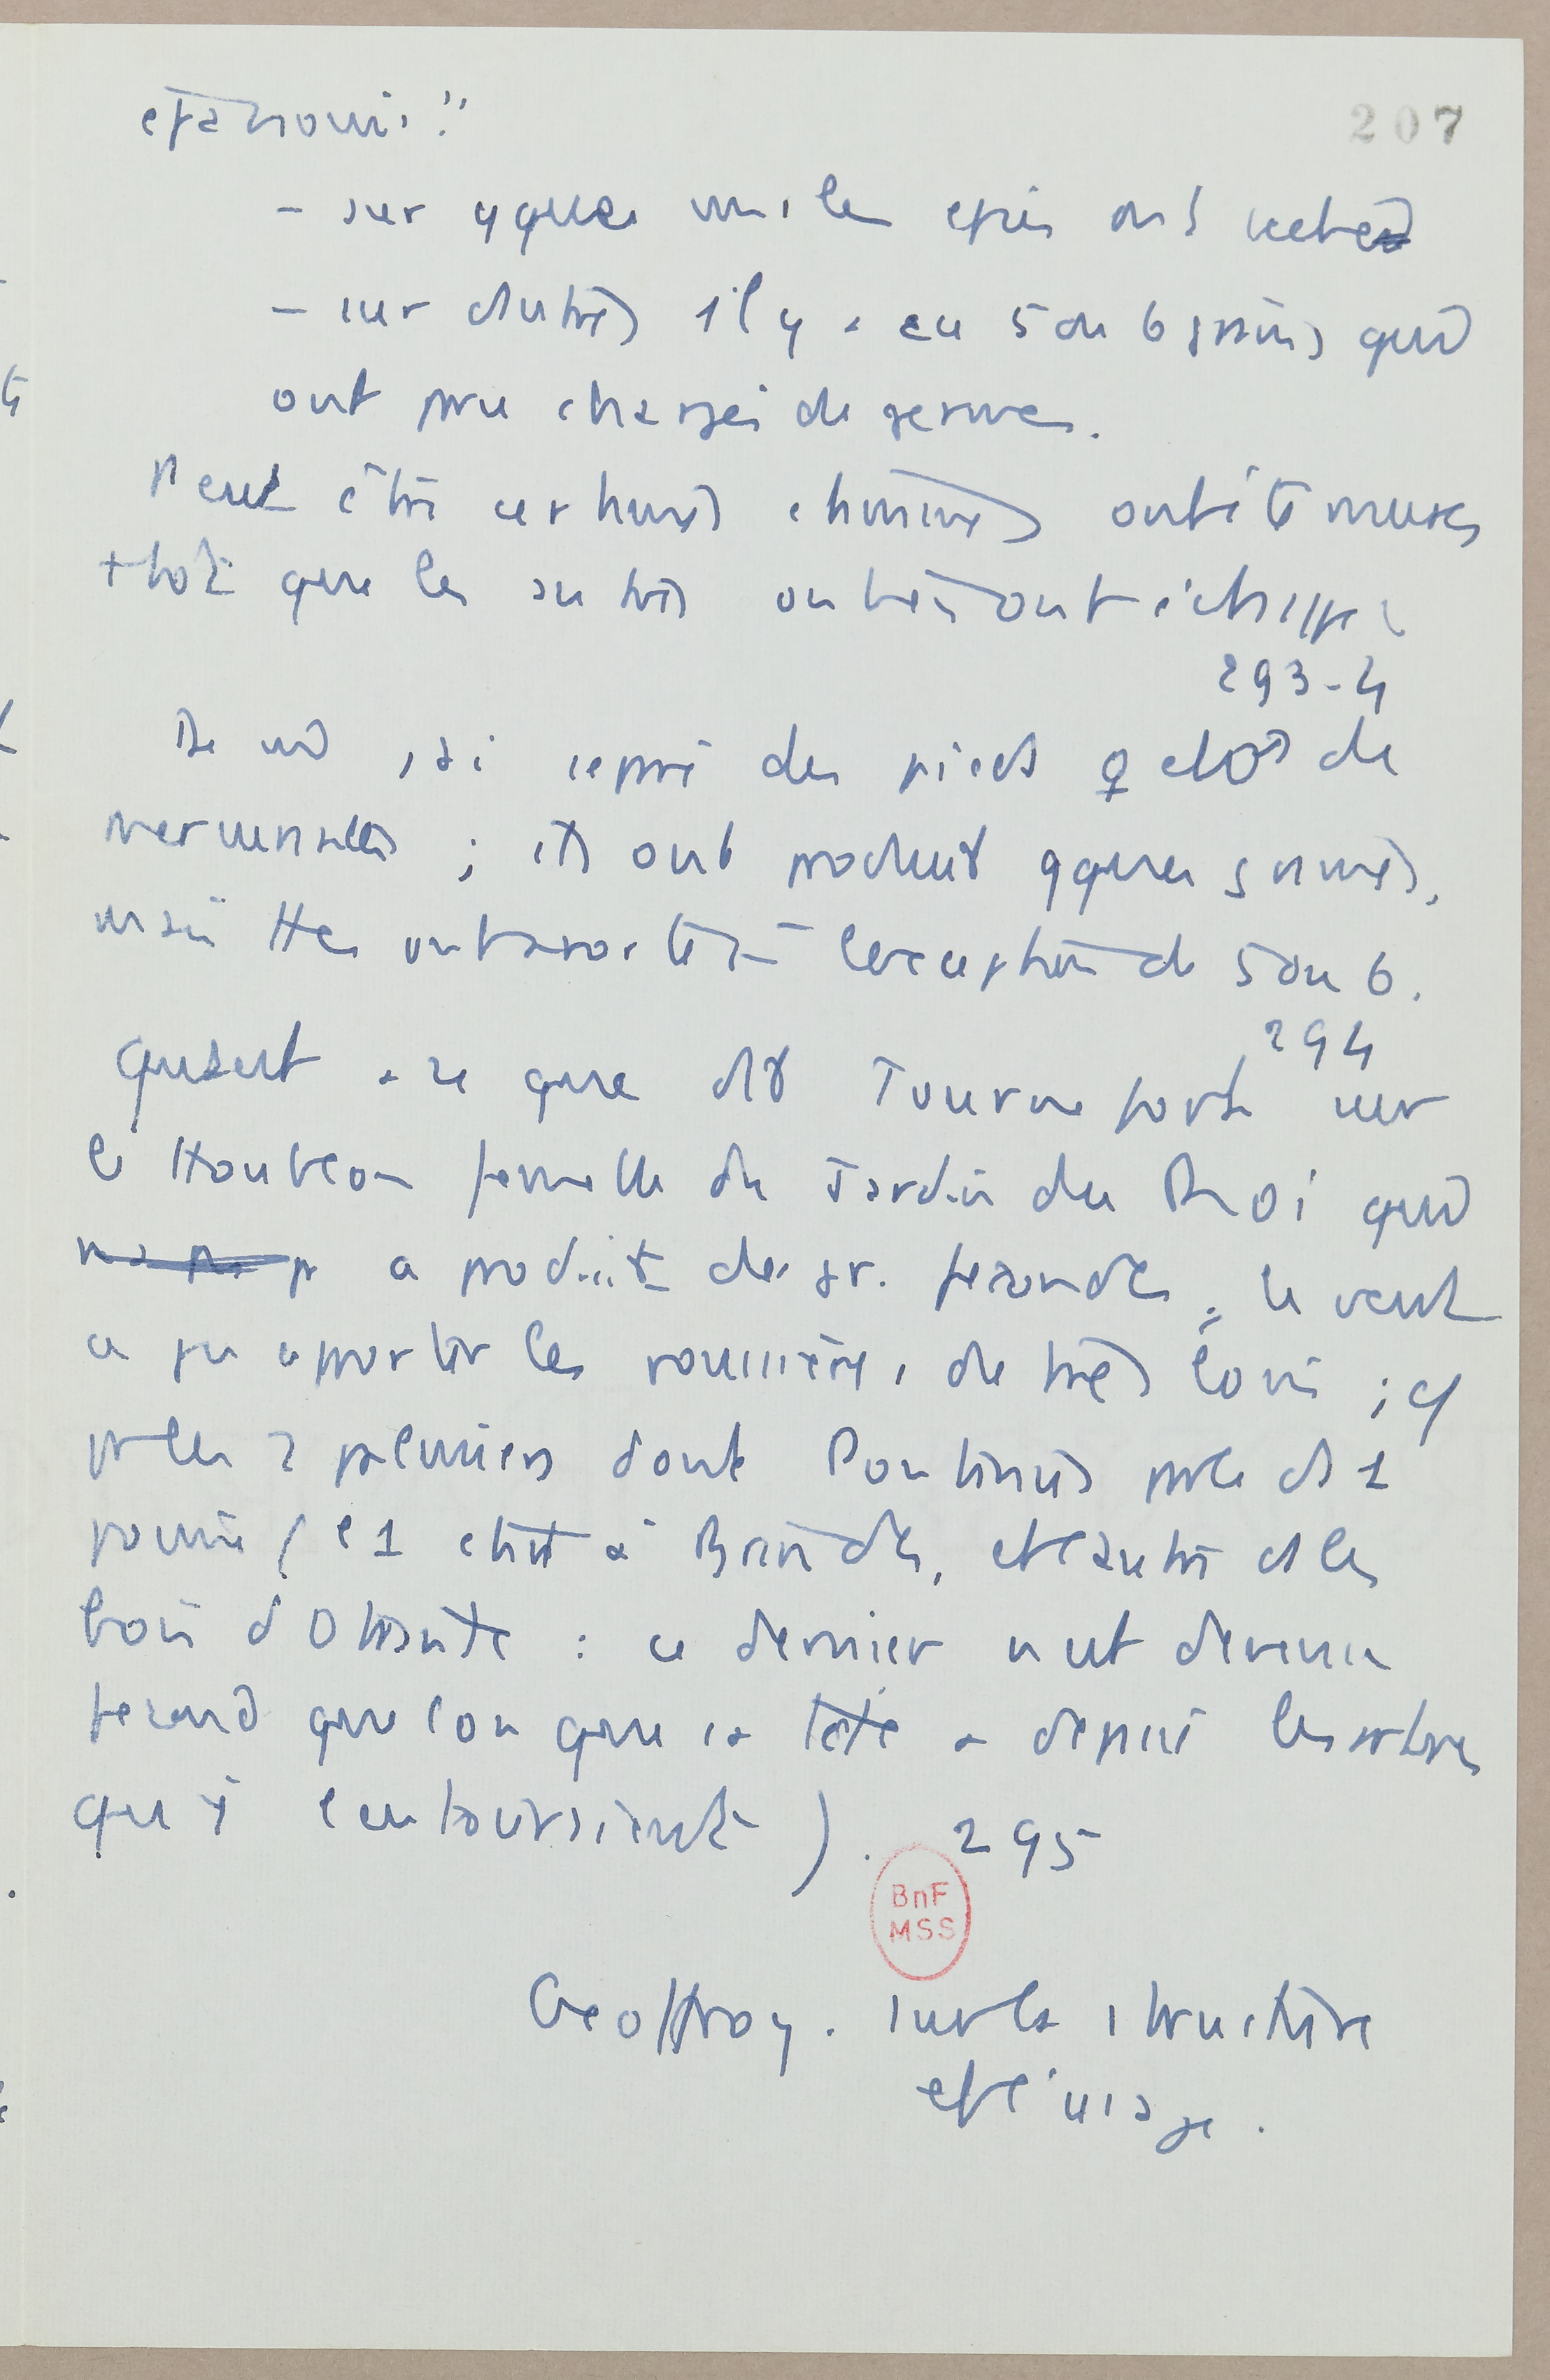 épanouis."
207
- sur qques uns les épis ont séché
- sur d'autres il y a eu 5 ou 6 grains qui
ont paru chargés de germes.
Peut être certaines étamines ont été mures
+ tôt que les autres ou bien ont échappé
293-4
De m̄ j'ai séparé des pieds ♀ et ♂ de
mercuriales ; ils ont produit qques graines,
mais ttes ont avorté à l'exception de 5 ou 6.
294
Quant à ce que dit Tournefort sur
le Houblon femelle du Jardin du Roi qui
a produit des gr. fécondes, le vent
a pu apporter les poussières de très loin ; cf
les 2 palmiers dont Pontanus parle ds 1
poème (l'1 était à Brindes, et l'autre ds les
bois d'Otrante : ce dernier n'est devenu
fécond que lorsque sa tête a dépassé les arbres
qui l'entouraient). 295
BnF
MSS
Geoffroy. Sur la structure
et l'usage.